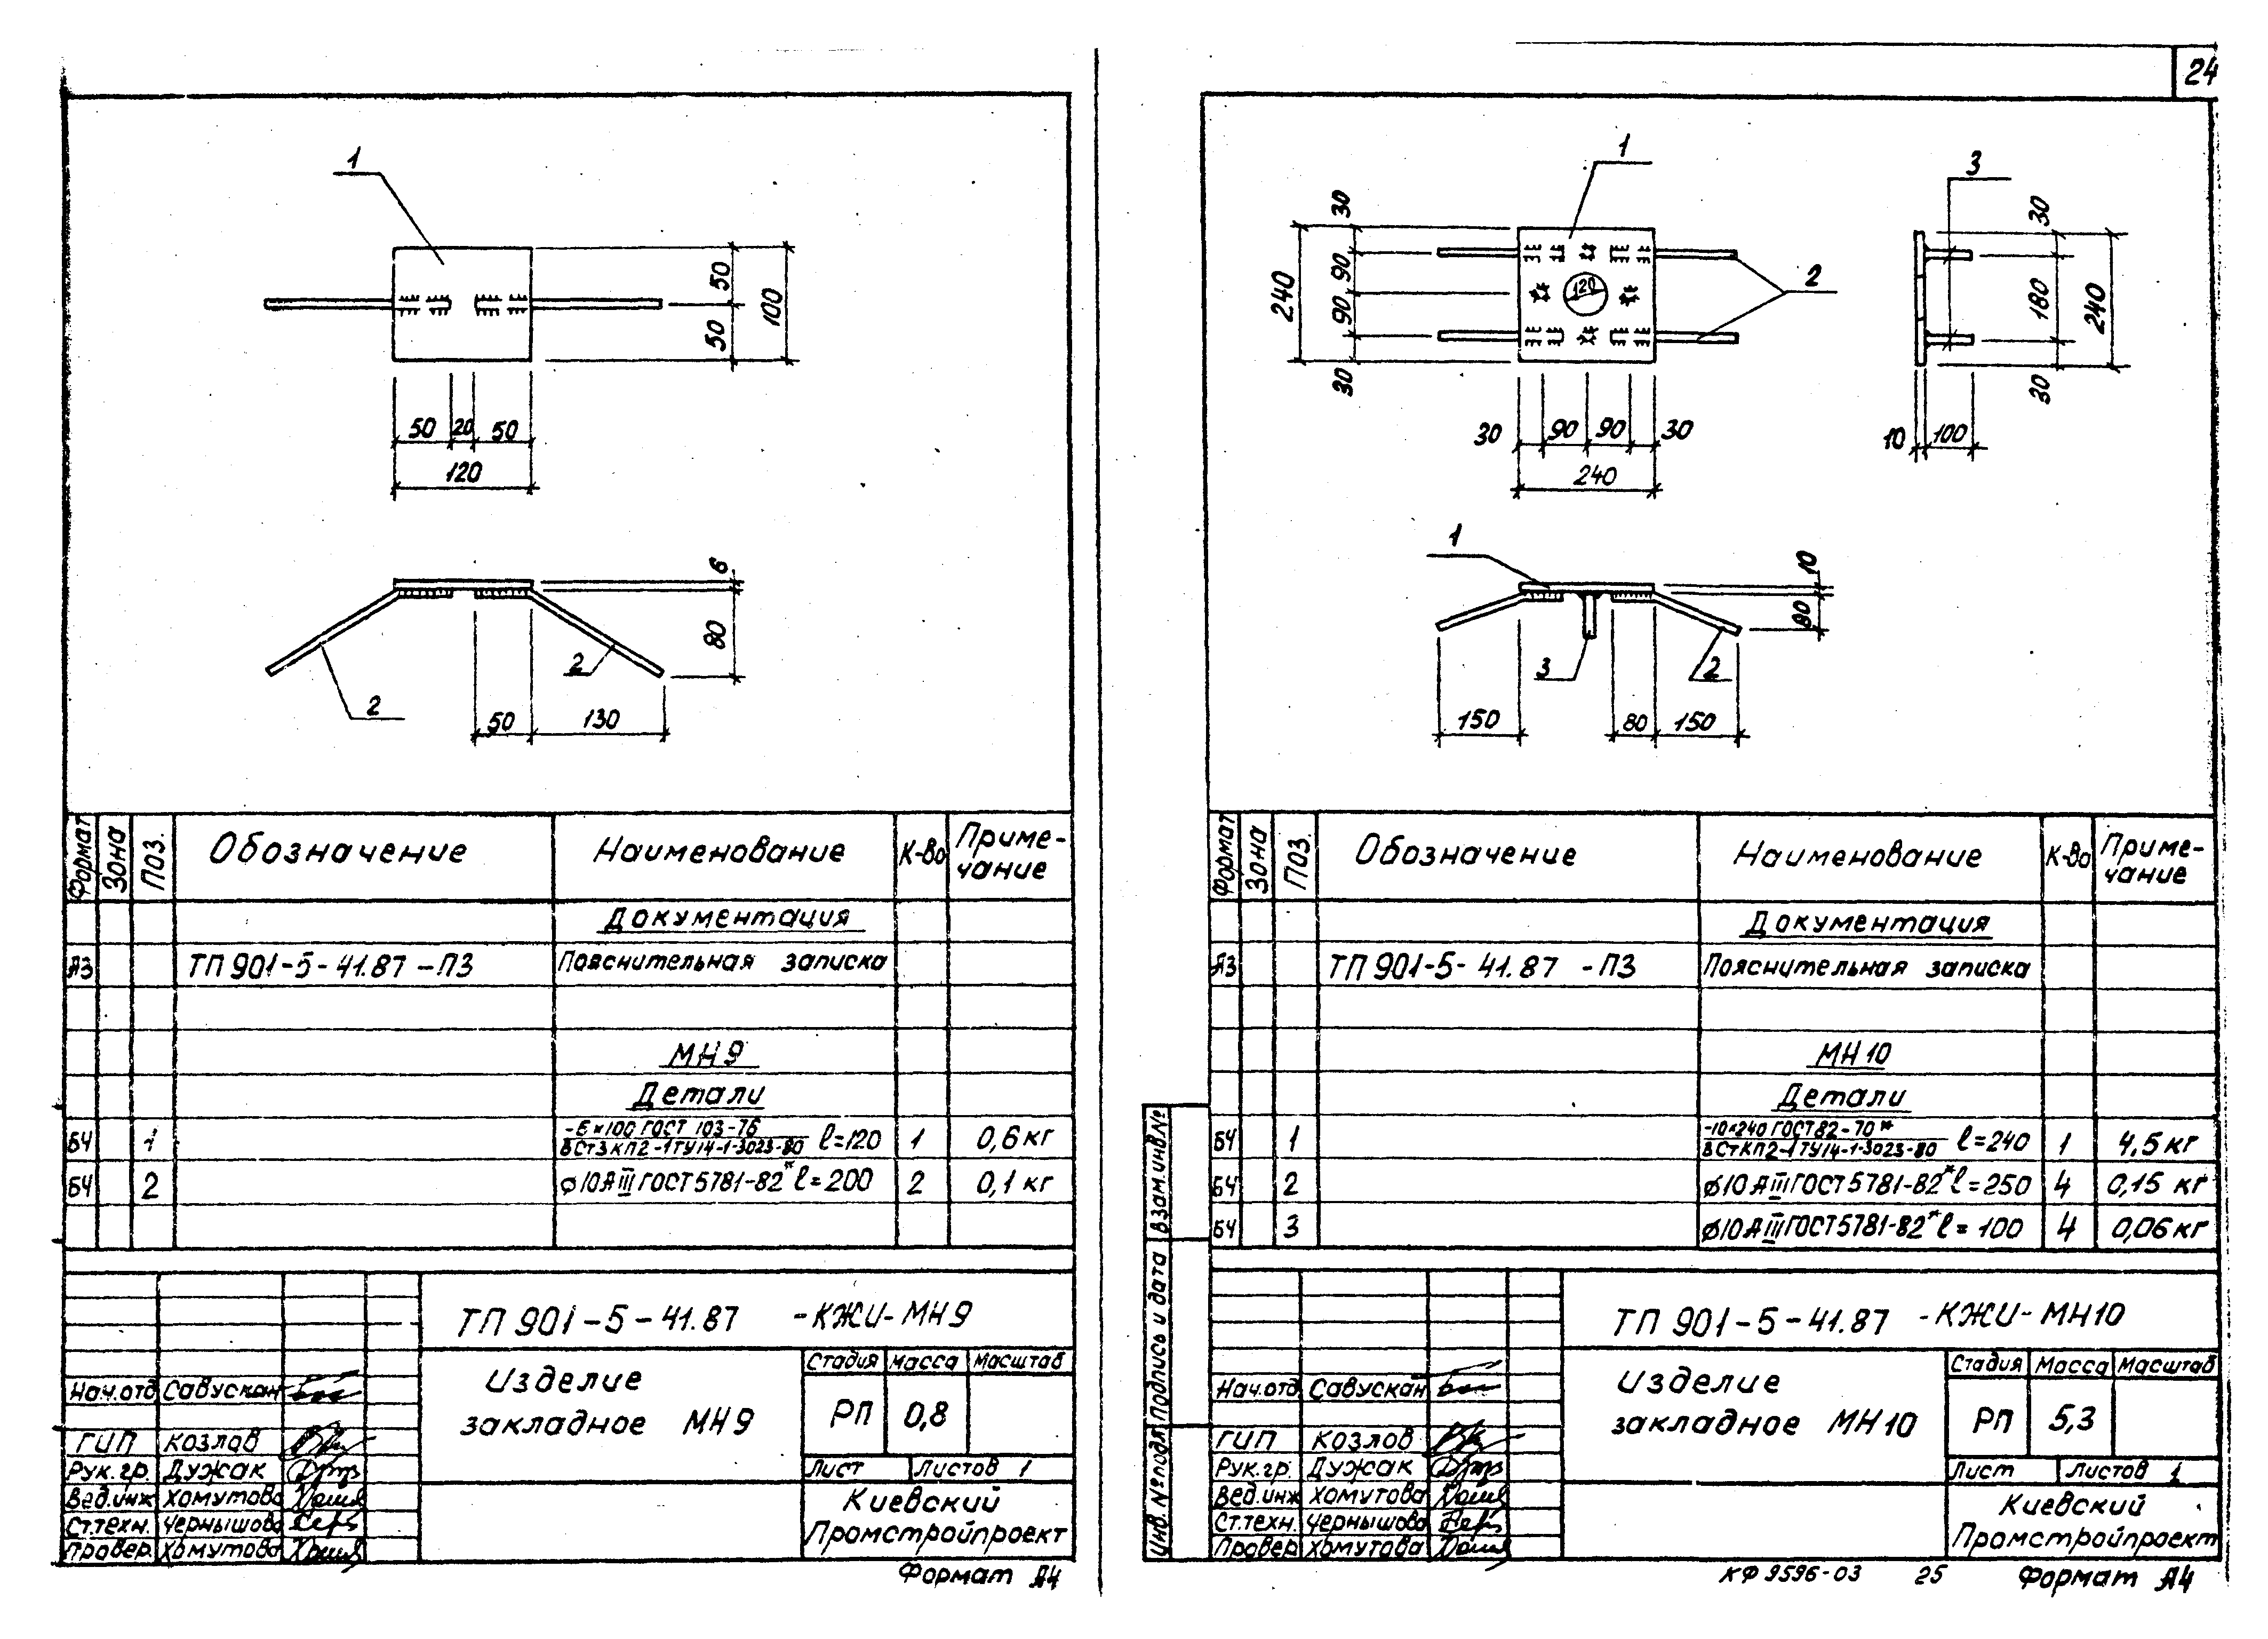 24
1
50
50
100
50 20 50
120
6
80
2
2
50 130
Формат Зона Поз. Обозначение Наименование К-во Приме-
чание
Документация
А3 ТП 901-5-41.87 -ПЗ Пояснительная записка
МН 9
Детали
БЧ 1 -6×100 ГОСТ 103-76
ВСт3кп2-1 ТУ14-1-3023-80 ℓ=120 1 0,6 кг
БЧ 2 ⌀10АIII ГОСТ 5781-82* ℓ=200 2 0,1 кг
ТП 901-5-41.87 -КЖИ-МН9
Изделие
закладное МН9
Стадия Масса Масштаб
РП 0,8
Лист Листов 1
Киевский
Промстройпроект
Нач.отд Савускан
ГИП Козлов
Рук.гр. Дужак
Вед.инж Хомутова
Ст.техн. Чернышова
Провер. Хомутова
Формат А4
1
3
2
30
90
90
30
240
30 90 90 30
240
120
30
180
30
240
10 100
1
10
80
3
2
150 80 150
Формат Зона Поз. Обозначение Наименование К-во Приме-
чание
Документация
А3 ТП 901-5-41.87 -ПЗ Пояснительная записка
МН 10
Детали
БЧ 1 -10×240 ГОСТ 82-70*
ВСтКП2-1 ТУ14-1-3023-80 ℓ=240 1 4,5 кг
БЧ 2 ⌀10АIII ГОСТ 5781-82* ℓ=250 4 0,15 кг
БЧ 3 ⌀10АIII ГОСТ 5781-82* ℓ=100 4 0,06 кг
ТП 901-5-41.87 -КЖИ-МН10
Изделие
закладное МН10
Стадия Масса Масштаб
РП 5,3
Лист Листов 1
Киевский
Промстройпроект
Нач.отд. Савускан
ГИП Козлов
Рук.гр. Дужак
Вед.инж Хомутова
Ст.техн. Чернышова
Провер Хомутова
Инв. № подл Подпись и дата Взам.инв.№
КФ 9596-03 25 Формат А4